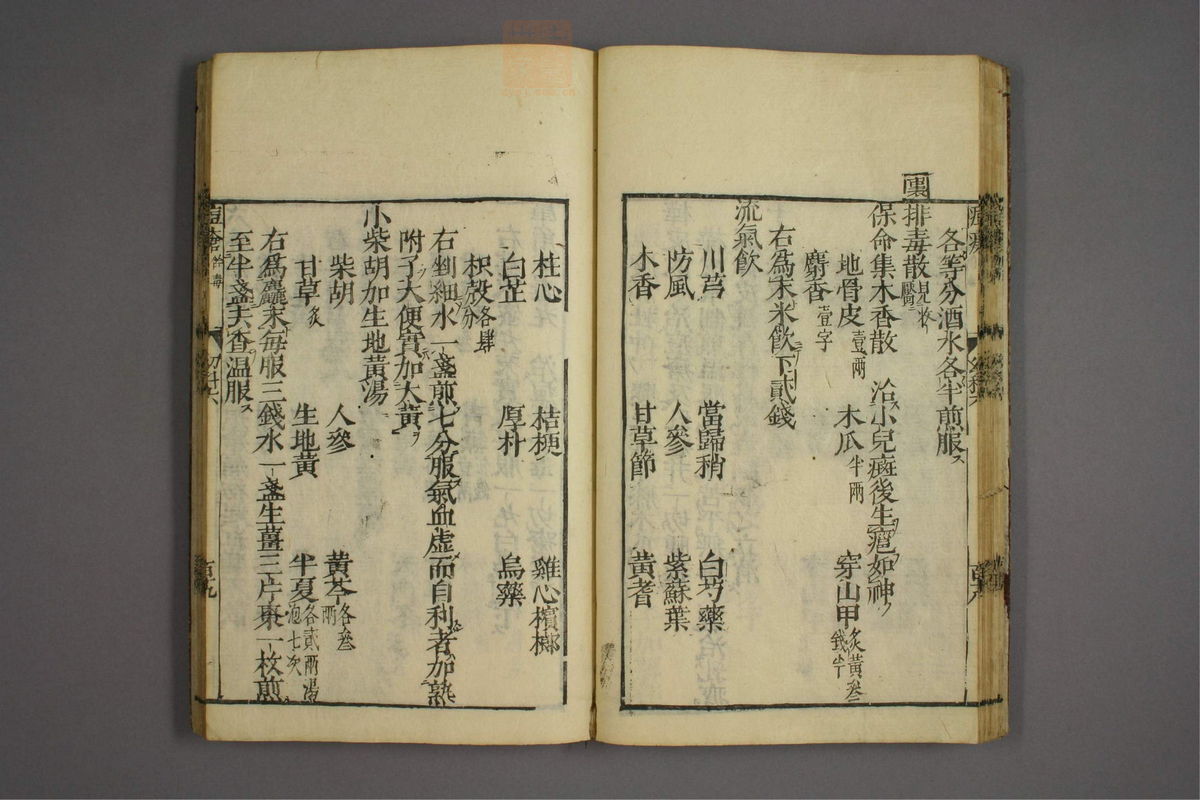 各等分酒水各半煎服
裏 排毒散
保命集木香散 治小兒癍後生瘡如神
地骨皮壹兩 木瓜半兩 穿山甲炙黃叁錢半
麝香壹字
右為末米飲下貳錢
流氣飲
川芎 當歸稍 白芍藥
防風 人參 紫蘇葉
木香 甘草節 黃耆
桂心 桔梗 雞心檳榔
白芷 厚朴 烏藥
枳殼各肆分
右剉細水一盞煎七分服氣血虛而自利者加熟
附子大便實加大黃
小柴胡加生地黃湯
柴胡 人參 黃芩各叁兩
甘草炙 生地黃 半夏各貳兩湯泡七次
右為麤末每服三錢水一盞生薑三片棗一枚煎
至半盞去査温服
痘瘡